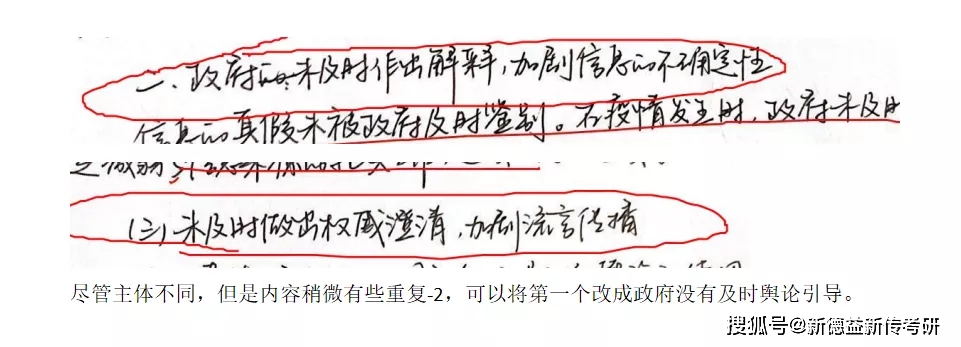 一、政府未及时作出解释,加剧信息的不确定性
信息的真假未被政府及时鉴别。在疫情发生时,政府未及时
(三)未及时做出权威澄清,加剧流言传播
尽管主体不同，但是内容稍微有些重复-2，可以将第一个改成政府没有及时舆论引导。
搜狐号@新德益新传考研